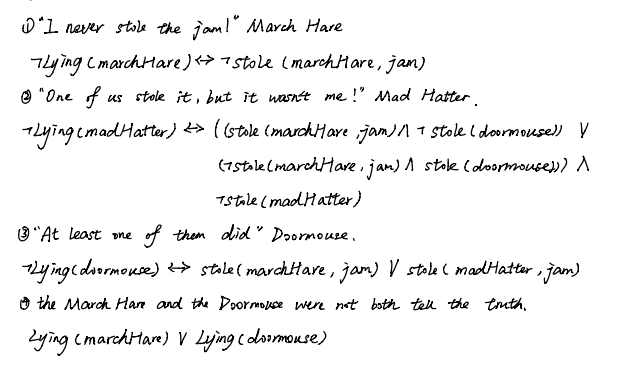 ① "I never stole the jam!" March Hare
¬Lying(marchHare) ↔ ¬stole (marchHare, jam)
② "One of us stole it, but it wasn't me!" Mad Hatter.
¬Lying(madHatter) ↔ ((stole(marchHare, jam) ∧ ¬stole(doormouse)) ∨
(¬stole(marchHare, jam) ∧ stole(doormouse))) ∧
¬stole(madHatter)
③ "At least one of them did" Doormouse.
¬Lying(doormouse) ↔ stole(marchHare, jam) ∨ stole(madHatter, jam)
④ the March Hare and the Doormouse were not both tell the truth.
Lying(marchHare) ∨ Lying(doormouse)